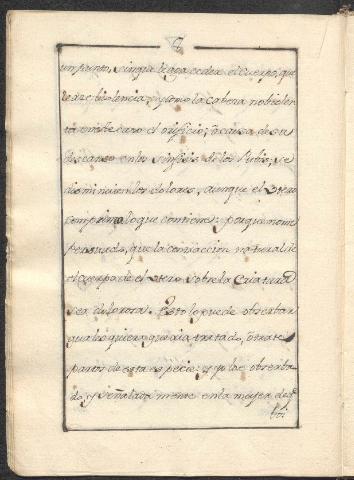 8
un punto, sin que haga ceder el cuerpo, que
le haze violencia; y como la Cabeza no violen
ta en este caso el orificio, à causa de su
descanso en los sinfisis de los Pubis, se
disminuien los dolores, aunque el Utero
comprima lo que contiene: porque no me
persuado, que la contraccion natural de
el cuerpo de el Utero sobre la Criatura
sea dolorosa. Esto lo puede observar
qualquiera que aia tratado, ò trate
partos de esta especie: y yo lo e observa
do, y señaladamente en la muger de q.e
voi